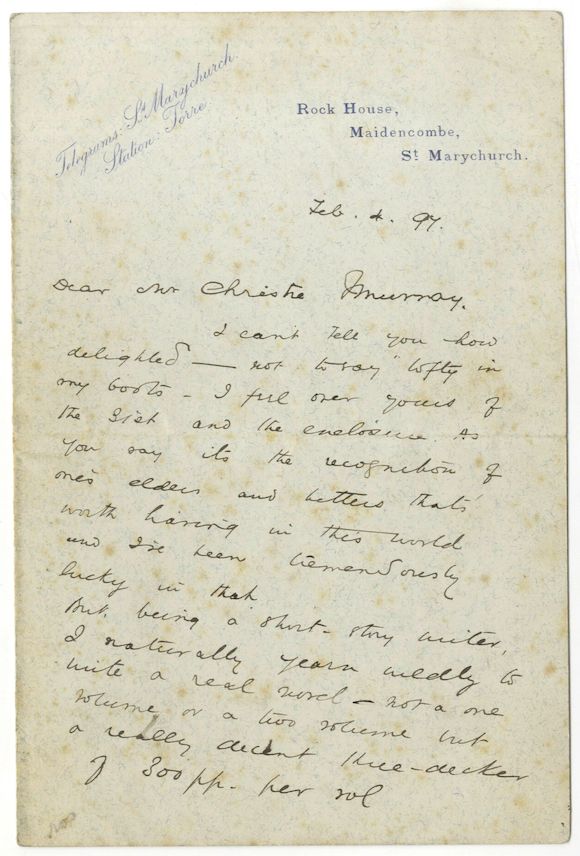 Telegrams: St Marychurch.
Station: Torre.
Rock House,
Maidencombe,
St Marychurch.
Feb. 4. 97.
Dear Mr Christie Murray,
I can't tell you how
delighted — not to say "lofty in
my boots - I feel over yours of
the 31st and the enclosure. As
you say its the recognition of
one's elders and betters that's
worth having in this world
and I've been tremendously
lucky in that
But, being a short-story writer,
I naturally yearn wildly to
write a real novel — not a one
volume or a two volume but
a really decent three-decker
of 300 pp. per vol